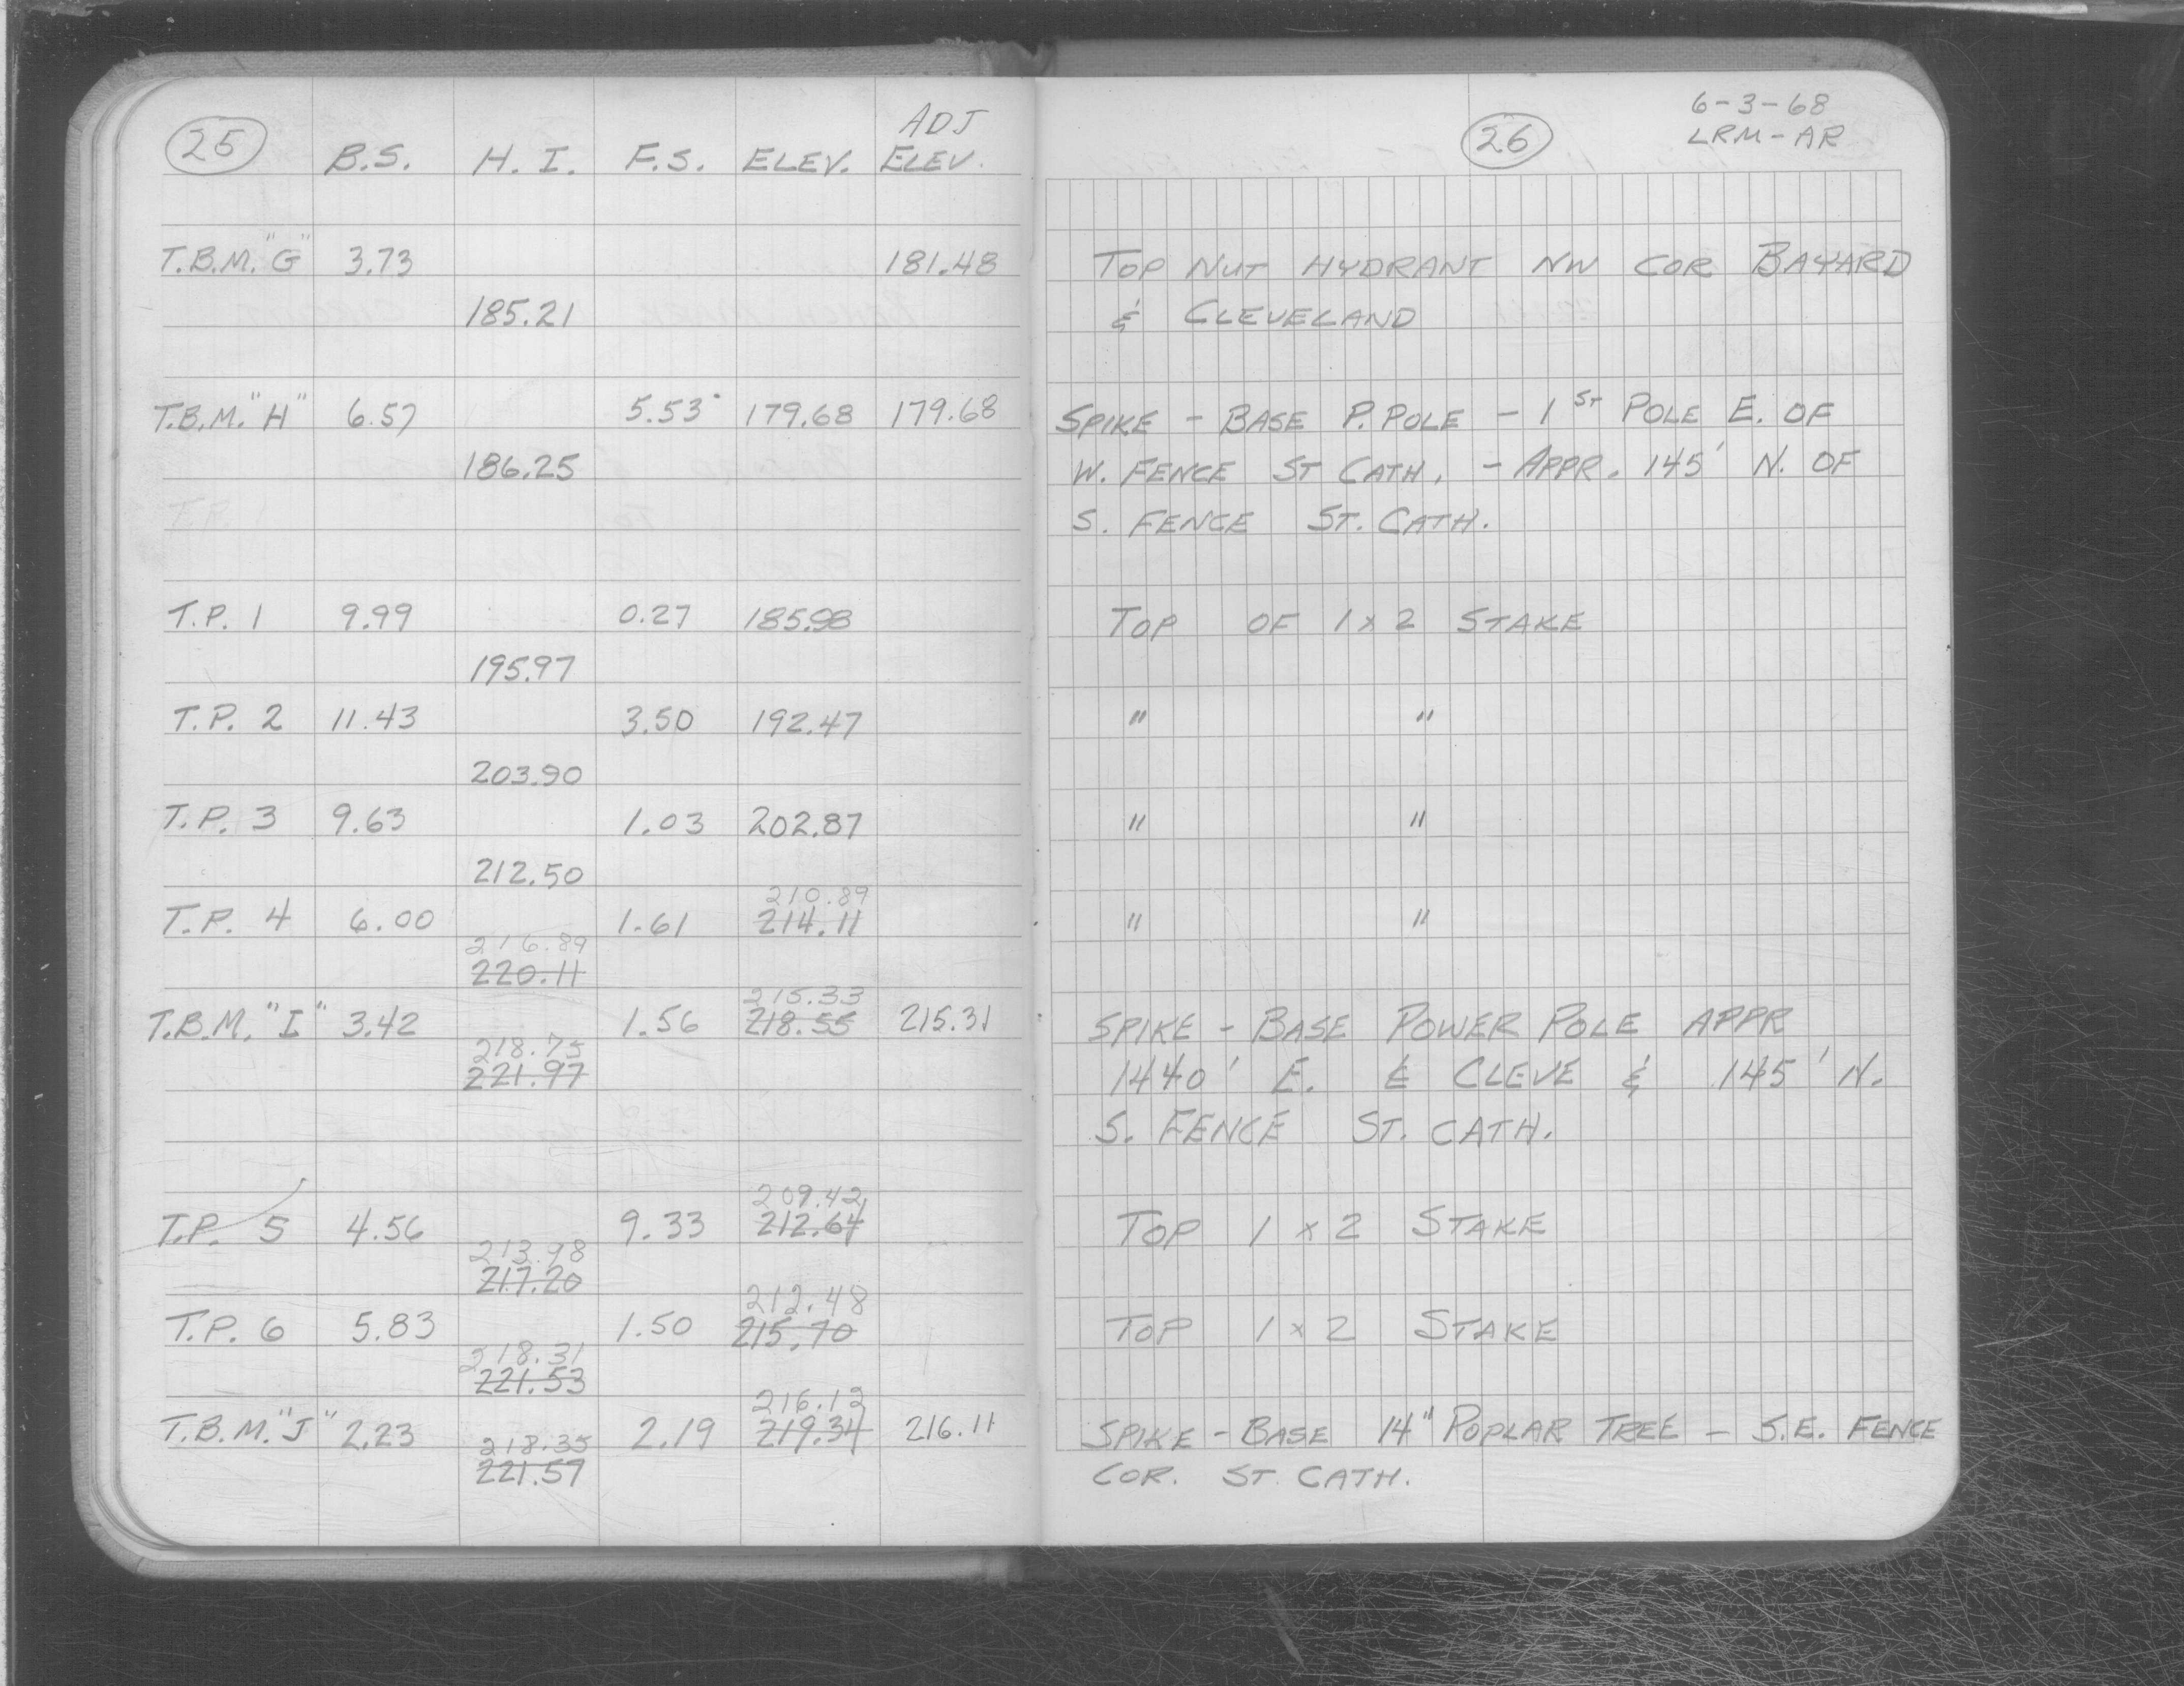 25 B.S. H. I. F.S. ELEV. ADJ ELEV.
T.B.M. "G" 3.73 181.48
185.21
T.B.M. "H" 6.57 5.53 179.68 179.68
186.25
T.P.
T.P. 1 9.99 0.27 185.98
195.97
T.P. 2 11.43 3.50 192.47
203.90
T.P. 3 9.63 1.03 202.87
212.50
210.89
T.P. 4 6.00 1.61 214.11
216.89
220.11
215.33
T.B.M. "I" 3.42 1.56 218.55 215.31
218.75
221.97
209.42
T.P. 5 4.56 9.33 212.64
213.98
217.20
212.48
T.P. 6 5.83 1.50 215.70
218.31
221.53
216.12
T.B.M. "J" 2.23 2.19 219.34 216.11
218.35
221.57
6-3-68
26 LRM-AR
TOP NUT HYDRANT NW COR BAYARD
& CLEVELAND
SPIKE - BASE P. POLE - 1ST POLE E. OF
W. FENCE ST CATH, - APPR. 145' N. OF
S. FENCE ST. CATH.
TOP OF 1 x 2 STAKE
" "
" "
" "
SPIKE - BASE POWER POLE APPR
1440' E. ℄ CLEVE & 145' N.
S. FENCE ST. CATH.
TOP 1 x 2 STAKE
TOP 1 x 2 STAKE
SPIKE - BASE 14" POPLAR TREE - S.E. FENCE
COR. ST. CATH.